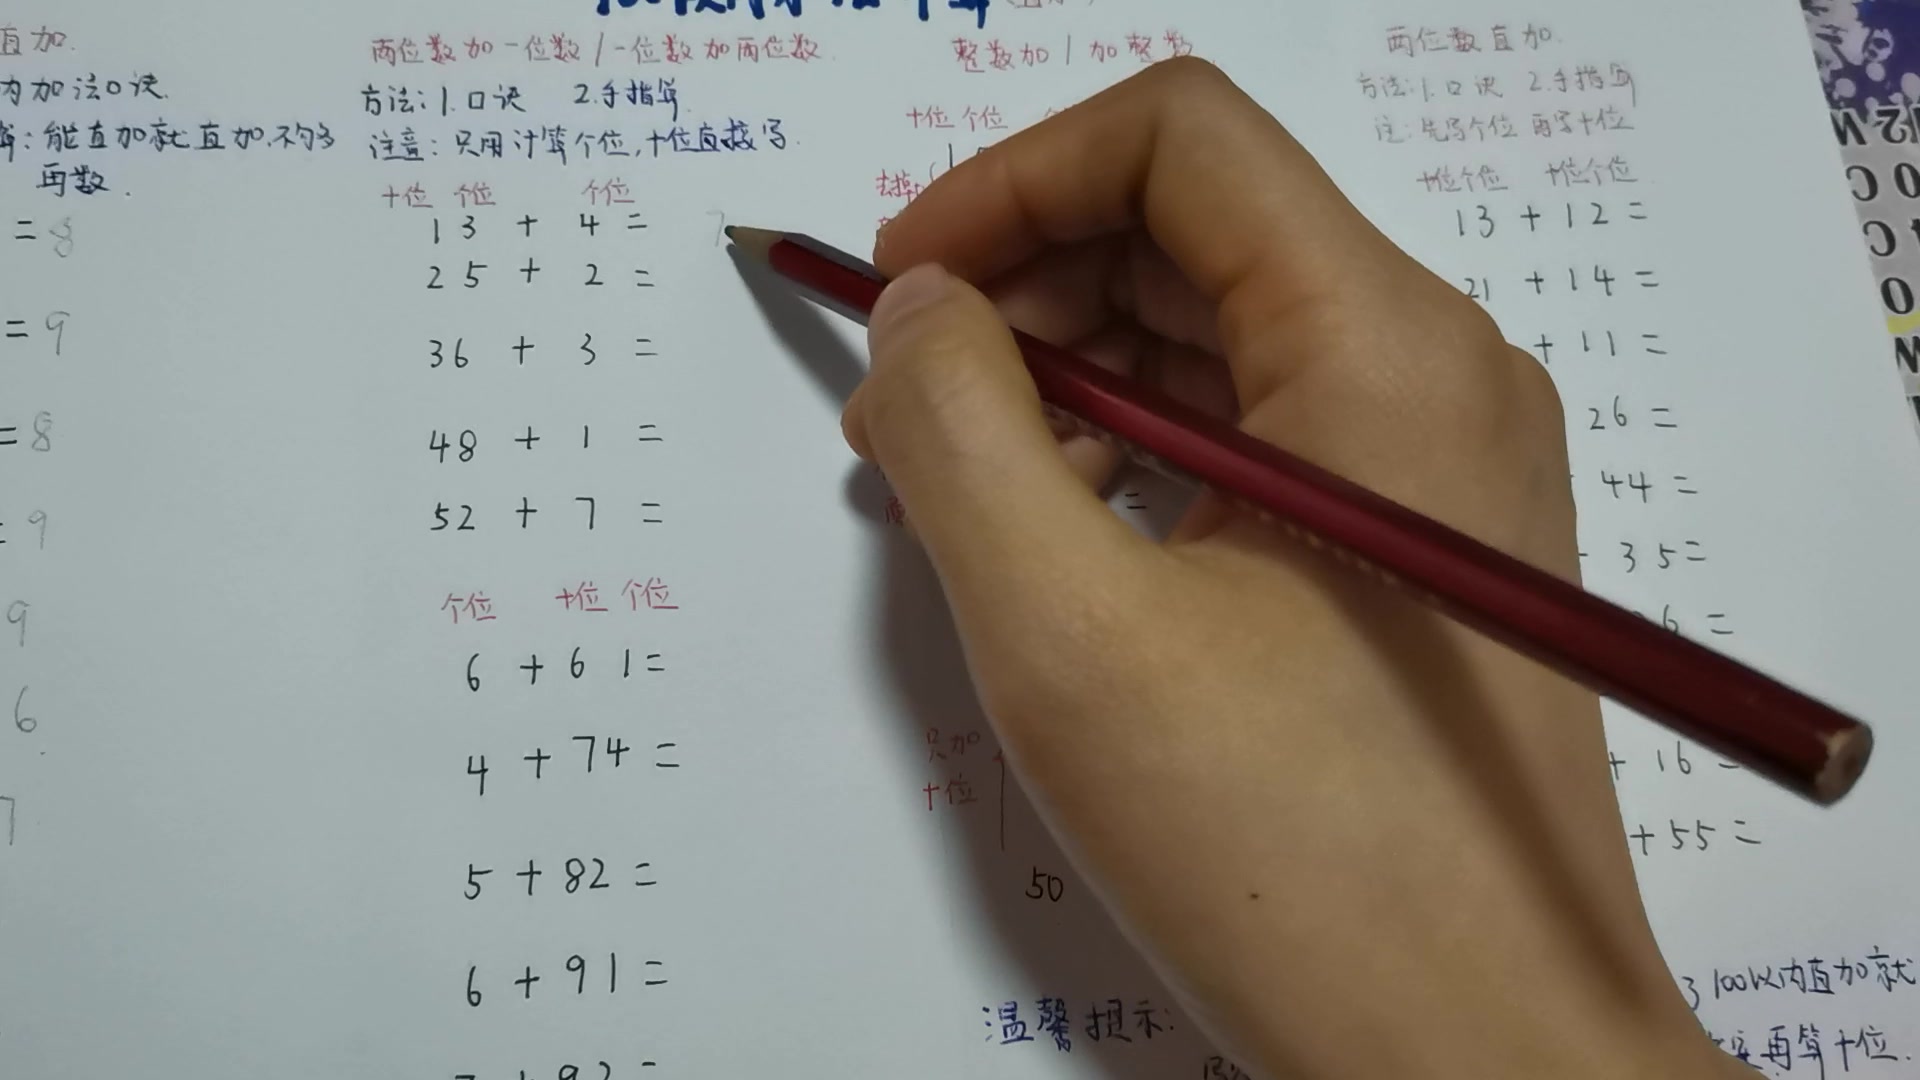 直加.
内加法口诀.
算:能直加就直加,不够
再数.
= 8
= 9
= 8
= 9
9
6
7
两位数加一位数/一位数加两位数.
方法:1.口诀 2.手指算.
注意:只用计算个位,十位直接写.
十位 个位 个位
13 + 4 = 7
25 + 2 =
36 + 3 =
48 + 1 =
52 + 7 =
个位 十位 个位
6 + 61 =
4 + 74 =
5 + 82 =
6 + 91 =
整数加/加整数
十位 个位
=
只加
十位
50
温馨提示:
两位数直加.
方法:1.口诀 2.手指算
注:先写个位 再写十位
十位个位 十位个位
13 + 12 =
21 + 14 =
+ 11 =
26 =
44 =
35 =
6 =
+ 16 =
+ 55 =
100以内直加就
再算十位.